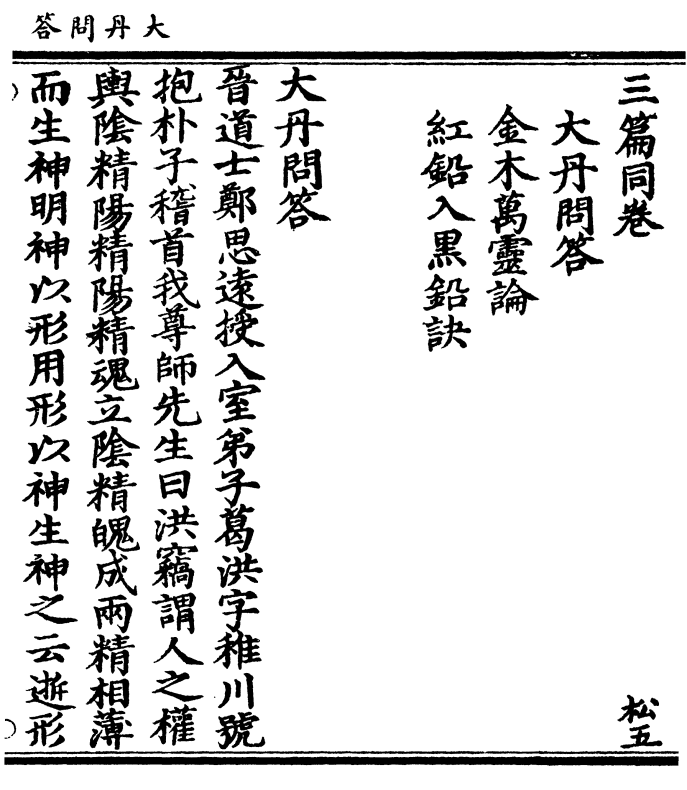 大丹問答
三篇同卷
松五
大丹問答
金木萬靈論
紅鉛入黒鉛訣
大丹問答
晉道士鄭思遠授入室弟子葛洪字稚川號
抱朴子稽首我尊師先生曰洪竊謂人之權
輿陰精陽精陽精魂立陰精魄成兩精相薄
而生神明神以形用形以神生神之云逝形